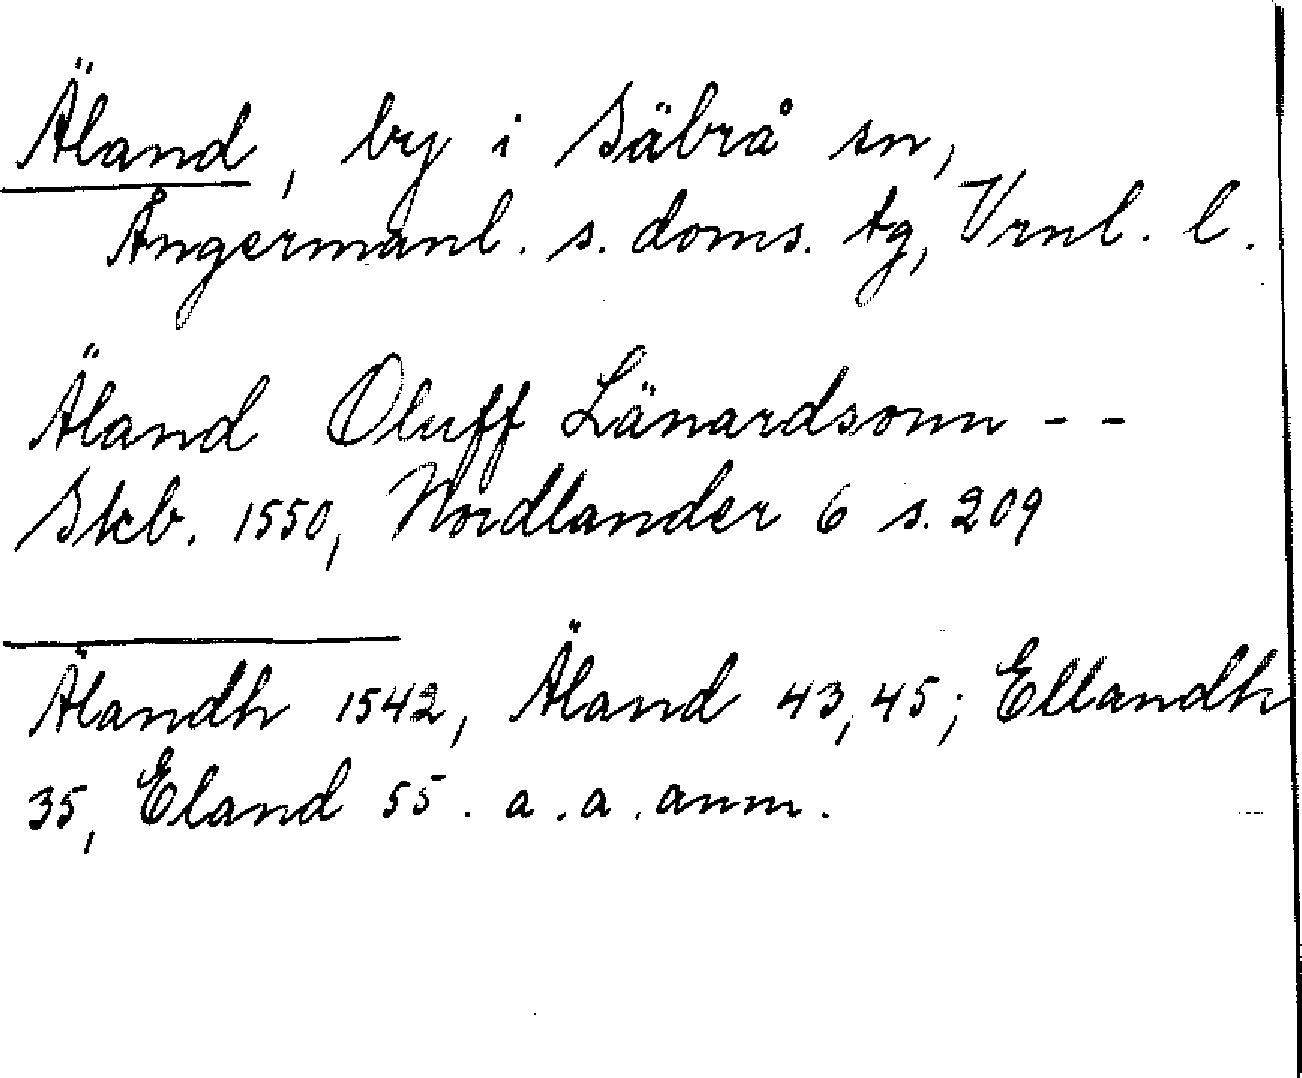 Äland, by i Säbrå sn,
Ångermanl. s. doms. tg, Vrnl. l.
Äland Oluff Länardsonn - -
Skb. 1550, Nordlander 6 s. 209
Älandh 1542, Äland 43, 45; Ellandh
35, Eland 55. a. a. anm.